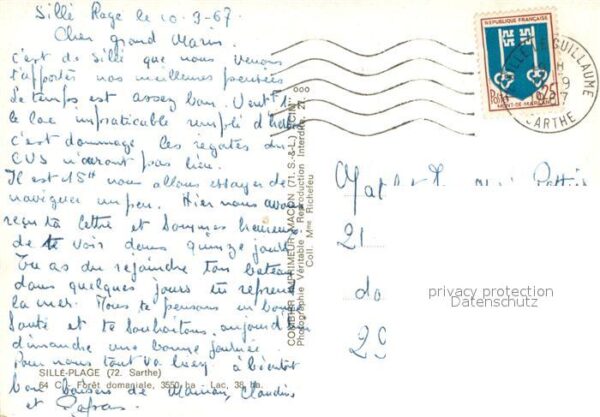 Sillé Plage le 10-9-67.
Cher grand Marin.
c'est de Sillé que nous venons
t'apporter nos meilleures pensées
Le temps est assez bon. Vent 1
le lac impraticable rempli d'herbe
c'est dommage les régates du
CVS n'auront pas lieu.
Il est 15h nous allons essayer de
naviguer un peu. Hier nous avons
reçu ta lettre et sommes heureux
de te voir dans quinze jours
Tu as du rejoindre ton bateau
dans quelques jours tu reprends
la mer. Nous te pensons en bonne
santé et te souhaitons aujourd'hui
dimanche une bonne journée.
Pour nous tout va bien. à bientôt
bons baisers de Maman, Claudine
et
SILLÉ-PLAGE (72. Sarthe)
64 C. Forêt domaniale, 3550 ha - Lac, 38 ha.
COMBIER IMPRIMEUR MACON (71. S.-&-L.) "CIM"
Photographie Véritable - Reproduction Interdite. 27.
Coll. Mme Richefeu
REPUBLIQUE FRANÇAISE
Postes
0,25
MONT-DE-MARSAN
SILLE-LE-GUILLAUME
H
9
SARTHE
21
do
29
privacy protection
Datenschutz